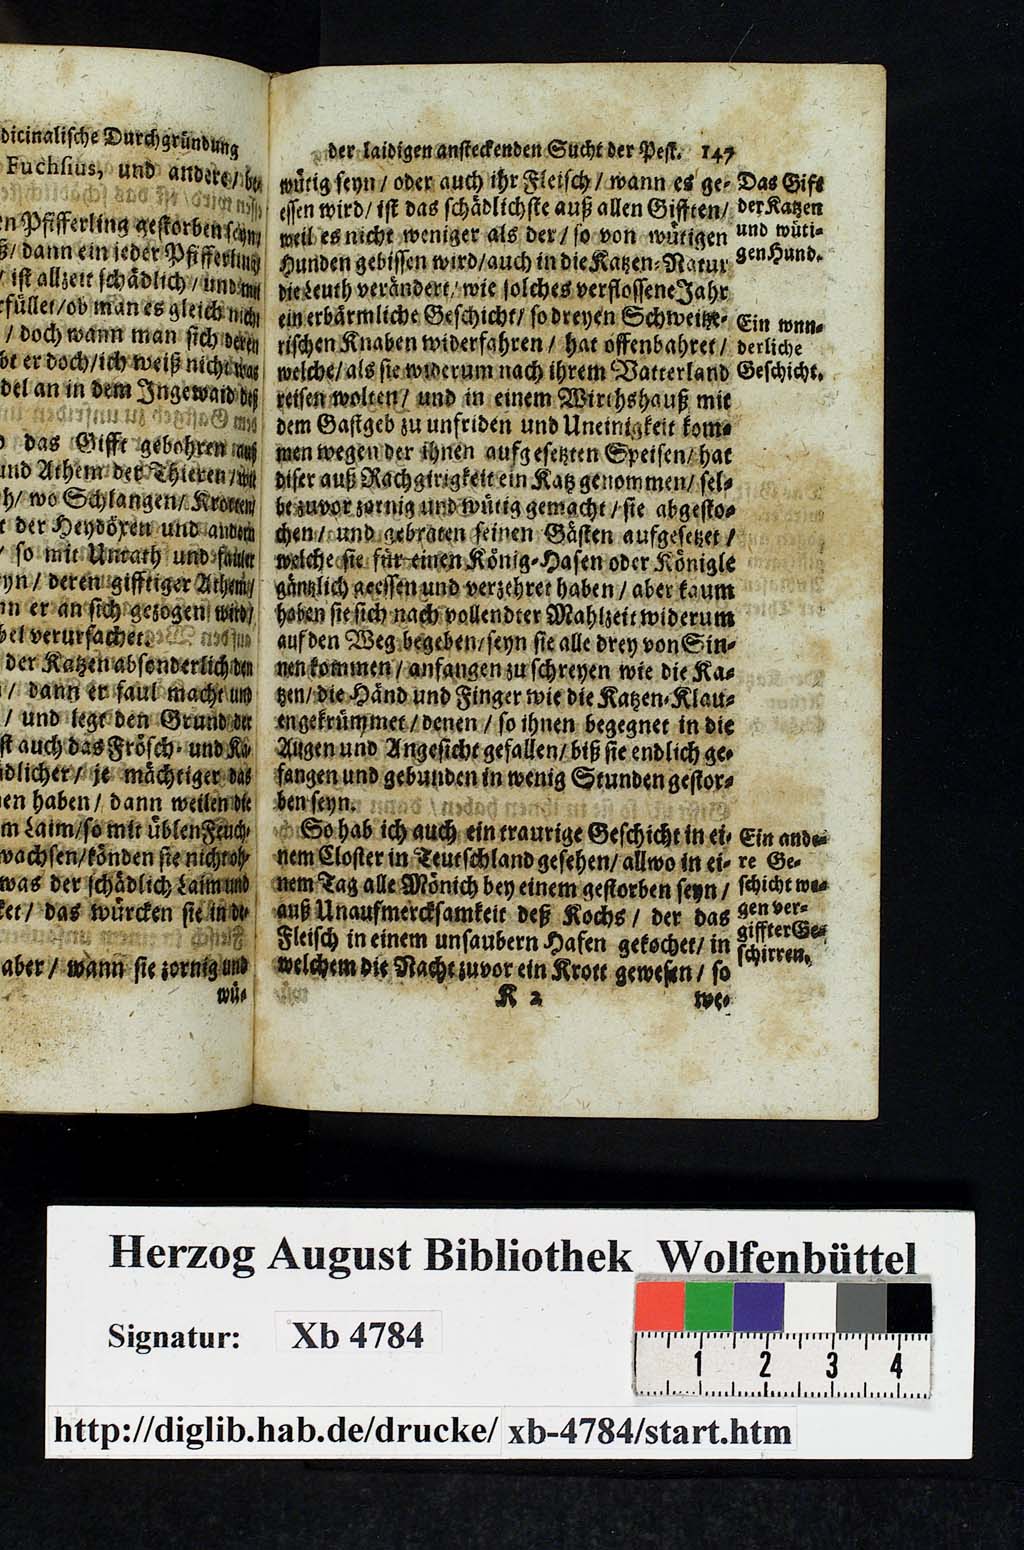 dicinalische Durchgründung
Fuchsius, und andere/ be-
en Pfifferling gestorben seyn/
ß/ dann ein jeder Pfifferling
/ ist allzeit schädlich/ und mit
rfüllet/ ob man es gleich nicht
/ doch wann man sich deren
bt er doch/ ich weiß nicht was
del an in dem Ingewaid deß
das Gifft gebohren auß
und Athem der Thieren/ wie
h/ wo Schlangen/ Krotten/
t der Heydöxen und andern
/ so mit Unrath und fauler
yn/ deren gifftiger Athem/
nn er an sich gezogen wird/
bel verursachet.
der Katzen absonderlich den
/ dann er faul macht und
/ und legt den Grund der
st auch das Frösch- und Kö-
dlicher/ je mächtiger das
en haben/ dann weilen die
m Laim/ so mit üblen Feuch-
wachsen/ könden sie nicht oh-
was der schädlich Laim und
ket/ das würcken sie in de-
aber/ wann sie zornig und
wü-
der laidigen ansteckenden Sucht der Pest. 147
wütig seyn/ oder auch ihr Fleisch/ wann es ge-
essen wird/ ist das schädlichste auß allen Gifften/
weil es nicht weniger als der/ so von wütigen
Hunden gebissen wird/ auch in die Katzen-Natur
die Leuth verändert/ wie solches verflossene Jahr
ein erbärmliche Geschicht/ so dreyen Schweitze-
rischen Knaben widerfahren/ hat offenbahret/
welche/ als sie widerum nach ihrem Vatterland
reisen wolten/ und in einem Wirthshauß mit
dem Gastgeb zu unfriden und Uneinigkeit kom-
men wegen der ihnen aufgesetzten Speisen/ hat
diser auß Rachgirigkeit ein Katz genommen/ sel-
be zuvor zornig und wütig gemacht/ sie abgesto-
chen/ und gebraten seinen Gästen aufgesetzet/
welche sie für einen König-Hasen oder Königle
gäntzlich geessen und verzehret haben/ aber kaum
haben sie sich nach vollendter Mahlzeit widerum
auf den Weg begeben/ seyn sie alle drey von Sin-
nen kommen/ anfangen zu schreyen wie die Ka-
tzen/ die Händ und Finger wie die Katzen-Klau-
en gekrümmet/ denen/ so ihnen begegnet in die
Augen und Angesicht gefallen/ biß sie endlich ge-
fangen und gebunden in wenig Stunden gestor-
ben seyn.
So hab ich auch ein traurige Geschicht in ei-
nem Closter in Teutschland gesehen/ allwo in ei-
nem Tag alle Mönich bey einem gestorben seyn/
auß Unaufmercksamkeit deß Kochs/ der das
Fleisch in einem unsaubern Hafen gekochet/ in
welchem die Nacht zuvor ein Krott gewesen/ so
K 2 we-
Das Gift
der Katzen
und wüti-
gen Hund.
Ein wun-
derliche
Geschicht.
Ein ande-
re Ge-
schicht we-
gen ver-
giffter Ge-
schirren.
Herzog August Bibliothek Wolfenbüttel
Signatur: Xb 4784
1 2 3 4
http://diglib.hab.de/drucke/ xb-4784/start.htm